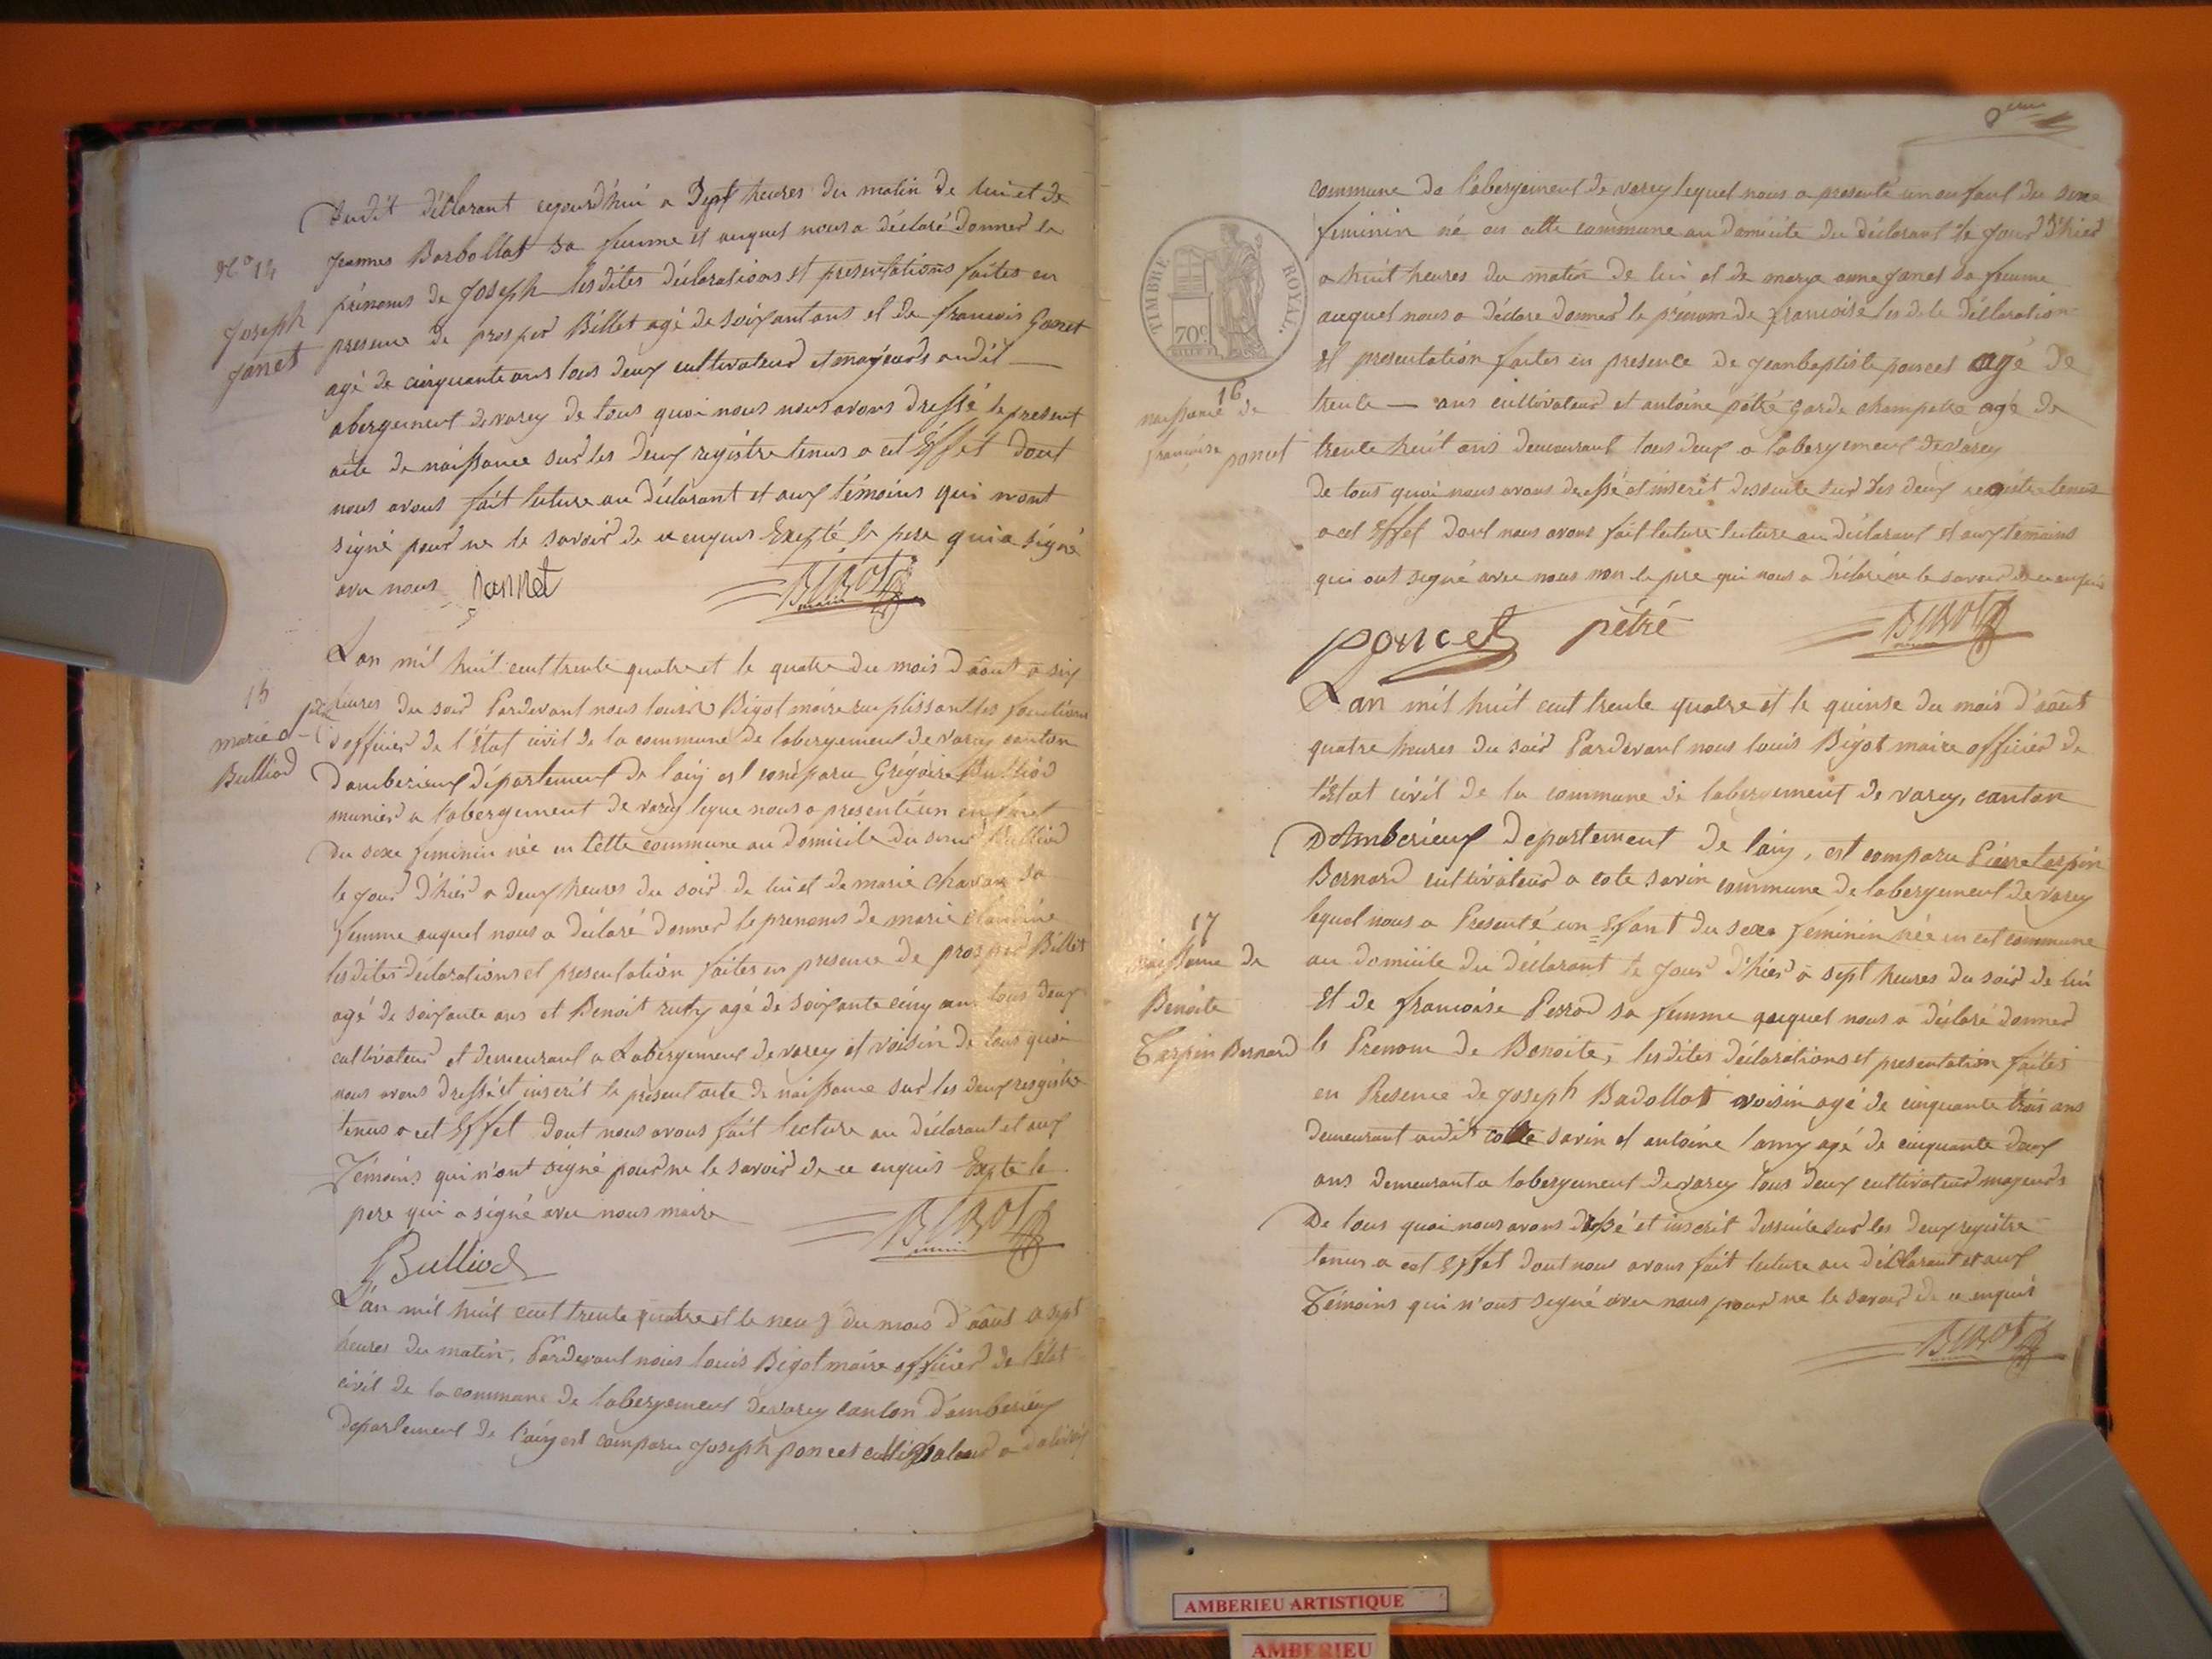 N.° 14
Joseph
Janet
dudit déclarant cejourd'hui a Sept heures du matin de lui et de
Jeanne Barbollat sa femme et auquel nous a déclaré donner le
prénoms de Joseph lesdites déclarations et presentations faites en
presence de prosper Billet agé de soixant ans et de francois Ganet
agé de cinquante ans tous deux cultivateur et mayeurs audit
abergement de varey de tous quoi nous nous avons dressé le present
acte de naissance sur les deux registre tenus a cet Effet dont
nous avons fait lecture au déclarant et aux témoins qui n'ont
signé pour ne le savoir de ce enquis Exepté le pere qui a signé
avec nous Jannet BIGOT
15
marie
Bulliod
Lan mil huit cent trente quatre et le quatre du mois d'août a six
heures du soir Pardevant nous louis Bigot maire remplissant les fonctions
d'officier de l'état civil de la commune de labergement de varey canton
d'amberieux département de l'ain est comparu Grégoire Bulliod
munier a labergement de varey leque nous a presenté un enfant
du sexe feminin née en cette commune au domicile du sieur Bulliod
le jour d'hier a deux heures du soir de lui et de marie sa
femme auquel nous a déclaré donner le prenoms de marie claudine
lesdites déclarations et presentation faites en presence de prosper Billet
agé de soixante ans et Benoit ruty agé de soixante cinq ans tous deux
cultivateur et demeurant a Labergement de varey et voisin de tous quoi
nous avons dressé et inscrit le présent acte de naissance sur les deux resgistre
tenus a cet Effet dont nous avons fait lecture au déclarant et aux
Témoins qui n'ont signé pour ne le savoir de ce enquis Expté le
pere qui a signé avec nous maire BIGOT
Bulliod
L'an mil huit cent trente quatre et le neuf du mois d'août a sept
heures du matin, Pardevant nous louis Bigot maire officier de l'état
civil de la commune de labergement de varey canton d'amberieux
département de l'ain est comparu Joseph poncet cultivateur a
TIMBRE ROYAL.
70c
16
naissance de
françoise poncet
commune de l'abergement de varey lequel nous a presenté un enfant du sexe
feminin né en cette commune au domicile du déclarant le jour d'hier
a huit heures du matin de lui et de marye anne Janet sa femme
auquel nous a déclare donner le prénom de francoise les dite déclaration
et presentation faites en presence de Jeanbaptiste poncet agé de
trente — ans cultivateur et antoine pétré garde champetre agé de
trente huit ans demeurant tous deux a labergement de varey
De tous quoi nous avons dressé et inscrit dessuite sur les deux registre tenus
a cet Effet dont nous avons fait lecture lecture au déclarant et aux témoins
qui ont signé avec nous non le pere qui nous a déclaré ne le savoir de ce enquis
poncet pétré BIGOT
17
naissance de
Benoite
Tarpin Bernard
Lan mil huit cent trente quatre et le quinse du mois d'août
quatre heures du soir Pardevant nous louis Bigot maire officier de
l'état civil de la commune de labergement de varey, canton
D'Amberieux departement de lain, est comparu Pierre tarpin
Bernard cultivateur a cote savin commune de labergement de varey
lequel nous a Presenté un Effant du sexe feminin née en cet commune
au domicile du déclarant le jour d'hier a sept heures du soir de lui
Et de francoise Perrod sa femme auquel nous a déclaré donner
le Prenom de Benoite, lesdites déclarations et presentation faites
en Presence de Joseph Badollat voisin agé de cinquante trois ans
demeurant audit cotte savin et antoine lamy agé de cinquante deux
ans demeurant a labergement de varey tous deux cultivateur mayeurs
De tous quoi nous avons dressé et inscrit dessuite sur les deux registre
tenus a cet Effet dont nous avons fait lecture au déclarant et aux
Témoins qui n'ont segné avec nous pour ne le savoir de ce enquis
BIGOT
AMBERIEU ARTISTIQUE
AMBERIEU